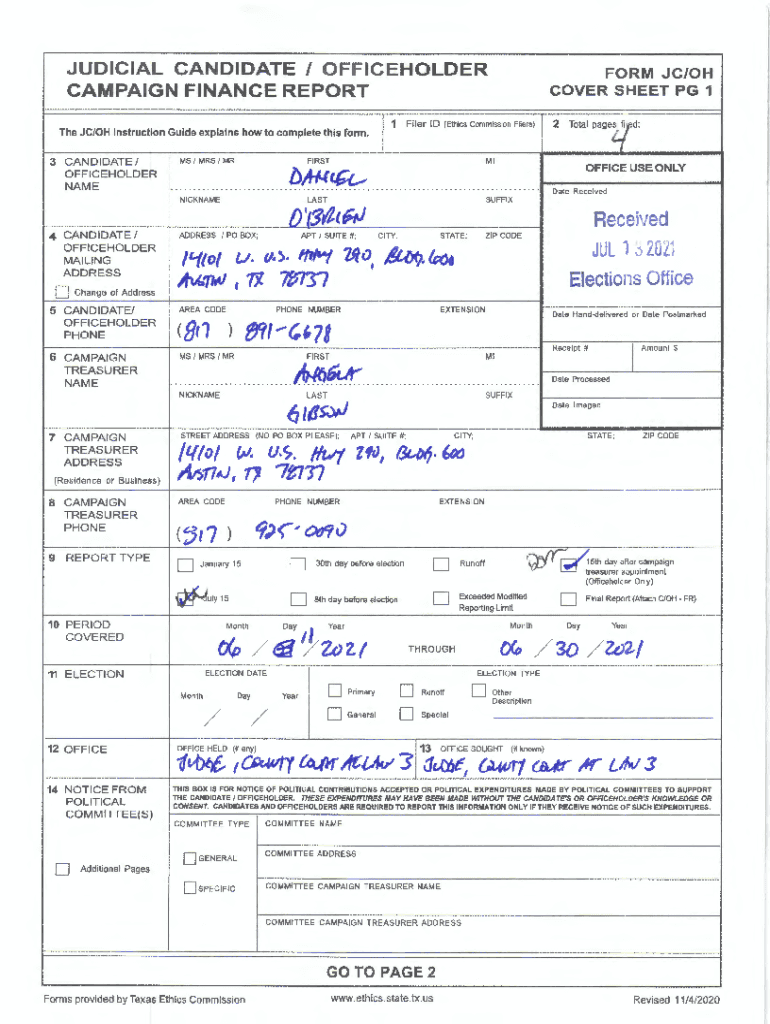 JUDICIAL CANDIDATE / OFFICEHOLDER
CAMPAIGN FINANCE REPORT
FORM JC/OH
COVER SHEET PG 1
The JC/OH Instruction Guide explains how to complete this form.
1 Filer ID (Ethics Commission Filers)
2 Total pages filed:
4
3 CANDIDATE / OFFICEHOLDER NAME
MS / MRS / MR FIRST MI
DANIEL
NICKNAME LAST SUFFIX
O'BRIEN
OFFICE USE ONLY
Date Received
Received
JUL 13 2021
Elections Office
4 CANDIDATE / OFFICEHOLDER MAILING ADDRESS
Change of Address
ADDRESS / PO BOX; APT / SUITE #; CITY; STATE; ZIP CODE
14101 W. U.S. HWY 290, BLDG. 600
AUSTIN, TX 78737
5 CANDIDATE/ OFFICEHOLDER PHONE
AREA CODE PHONE NUMBER EXTENSION
(817) 891-6678
Date Hand-delivered or Date Postmarked
Receipt # Amount $
Date Processed
Date Imaged
6 CAMPAIGN TREASURER NAME
MS / MRS / MR FIRST MI
ANGELA
NICKNAME LAST SUFFIX
GIBSON
7 CAMPAIGN TREASURER ADDRESS
(Residence or Business)
STREET ADDRESS (NO PO BOX PLEASE); APT / SUITE #; CITY; STATE; ZIP CODE
14101 W. U.S. HWY 290, BLDG. 600
AUSTIN, TX 78737
8 CAMPAIGN TREASURER PHONE
AREA CODE PHONE NUMBER EXTENSION
(817) 925-0090
9 REPORT TYPE
January 15
30th day before election
Runoff
15th day after campaign treasurer appointment (Officeholder Only)
July 15
8th day before election
Exceeded Modified Reporting Limit
Final Report (Attach C/OH - FR)
10 PERIOD COVERED
Month Day Year Month Day Year
06 / 11 / 2021 THROUGH 06 / 30 / 2021
11 ELECTION
ELECTION DATE ELECTION TYPE
Month Day Year
/ /
Primary Runoff Other Description
General Special
12 OFFICE
OFFICE HELD (if any)
JUDGE, COUNTY COURT AT LAW 3
13 OFFICE SOUGHT (if known)
JUDGE, COUNTY COURT AT LAW 3
14 NOTICE FROM POLITICAL COMMITTEE(S)
Additional Pages
THIS BOX IS FOR NOTICE OF POLITICAL CONTRIBUTIONS ACCEPTED OR POLITICAL EXPENDITURES MADE BY POLITICAL COMMITTEES TO SUPPORT
THE CANDIDATE / OFFICEHOLDER. THESE EXPENDITURES MAY HAVE BEEN MADE WITHOUT THE CANDIDATE'S OR OFFICEHOLDER'S KNOWLEDGE OR
CONSENT. CANDIDATES AND OFFICEHOLDERS ARE REQUIRED TO REPORT THIS INFORMATION ONLY IF THEY RECEIVE NOTICE OF SUCH EXPENDITURES.
COMMITTEE TYPE
GENERAL
SPECIFIC
COMMITTEE NAME
COMMITTEE ADDRESS
COMMITTEE CAMPAIGN TREASURER NAME
COMMITTEE CAMPAIGN TREASURER ADDRESS
GO TO PAGE 2
Forms provided by Texas Ethics Commission
www.ethics.state.tx.us
Revised 11/4/2020